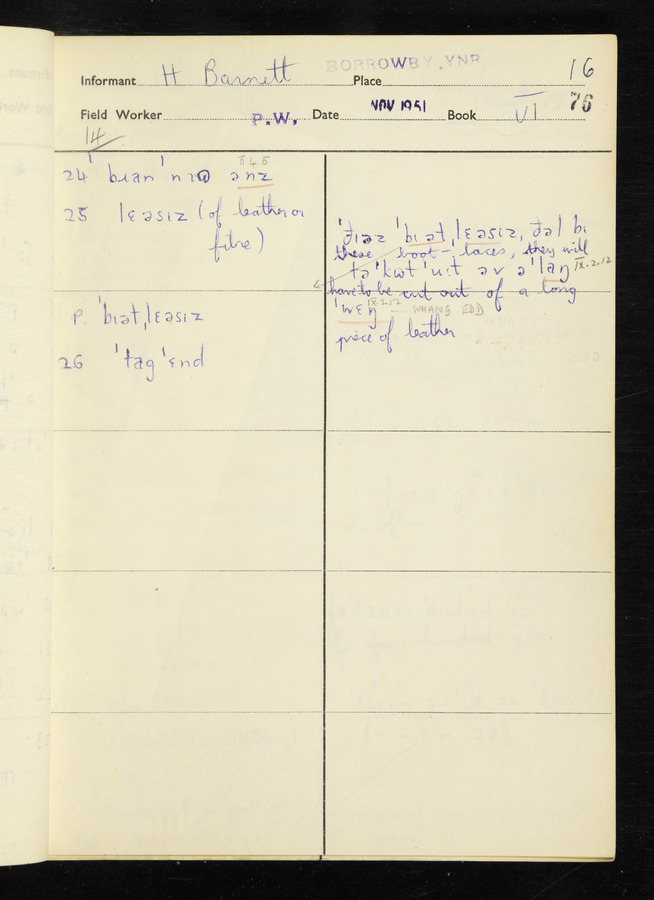 BORROWBY, YNR 16
Informant H Barnett Place
76
Field Worker P.W. Date NOV 1951 Book VI
14
24 bɪən
25 lɛəsɪz (of leather or
fibre)
P. ˈbɪətˌlɛəsɪz
26 ˈtag ˈɛnd
ˈðɪəz ˈbɪətˌlɛəsɪz, ðəl bi
these boot-laces, they will
tə ˈkʊt ˈuːt əv ə ˈlaŋ IX.2.12
have to be cut out of a long
ˈwɛŋ IX.2.12 — WHANG EDD
piece of leather